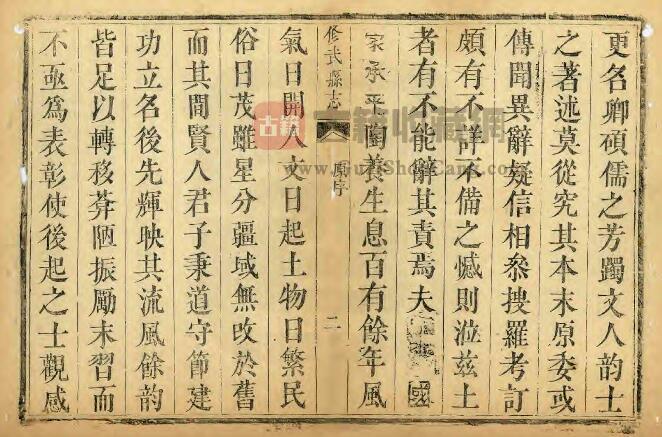 更名卿碩儒之芳躅文人韵士
之著述莫從究其本末原委或
傳聞異辭疑信相叅搜羅考訂
頗有不詳不備之憾則涖兹土
者有不能辭其責焉夫國
家承平陶養生息百有餘年風
修武縣志 原序 二
氣日開人文日起土物日繁民
俗日茂雖星分疆域無改於舊
而其間賢人君子秉道守節建
功立名後先輝映其流風餘韵
皆足以轉移莾陋振勵末習而
不亟爲表彰使後起之士觀感
古籍
古籍收藏網